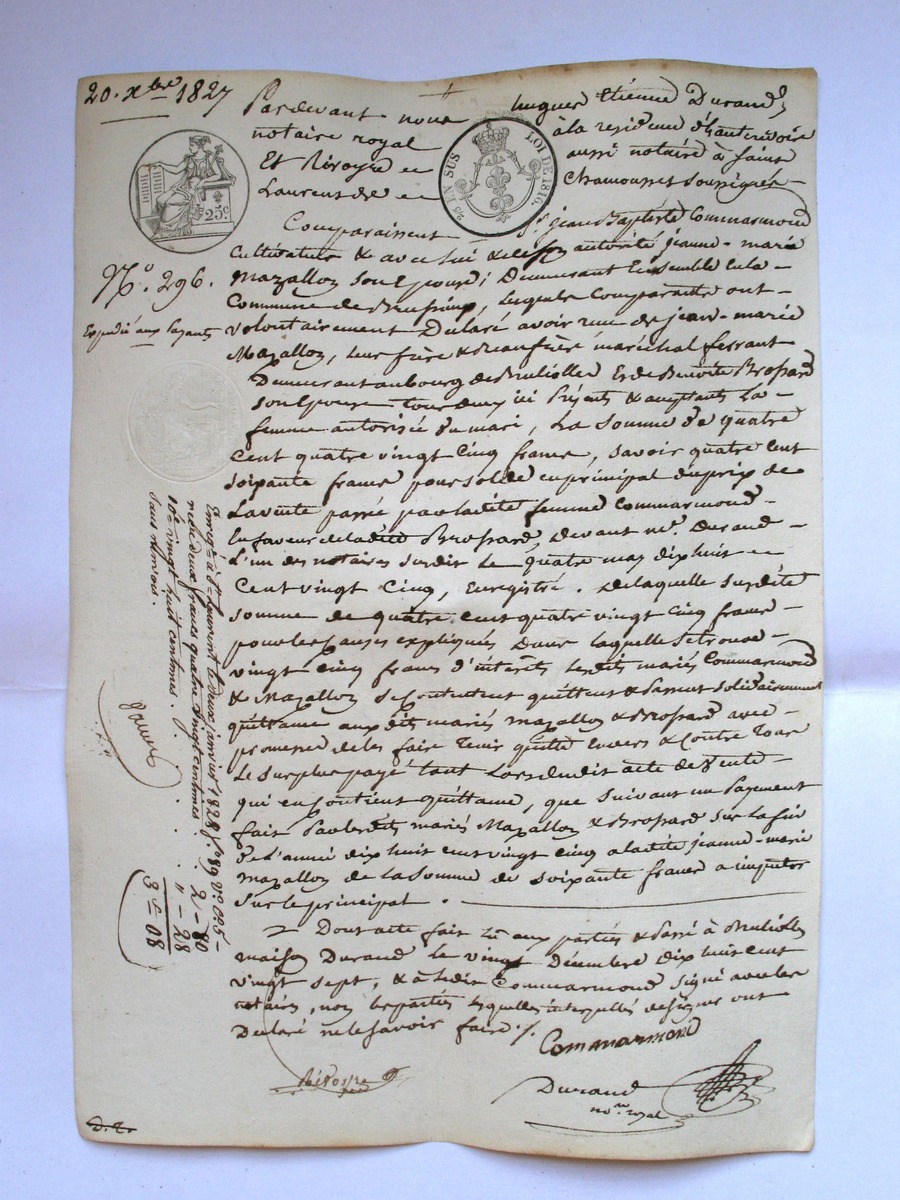 20. Xbre 1827
Pardevant nous hugues Etienne Durand,
notaire royal à la residence d'hauterivoire
Et Rivoyre aussi notaire à saint
Laurent de Chamousset soussignés
25 EN SUS LOI DE 1816.
25c
Comparaissent Sr jean Baptiste Commarmond
Cultivateur & avec lui & de son autorité jeanne-marie
Mazallon son Epouse, Demeurant Ensemble en la
Commune de Brussieux, Lesquels Comparants ont
No. 296.
Expédié aux Payants
volontairement Déclaré avoir reçu de jean-marie
Mazallon, leur frère & Beaufrère maréchal ferrant
Demeurant au bourg de Brullioles Et de Benoite Brossard
son Epouse tous deux ici Présents & acceptants La
femme autorisée du mari, La Somme de quatre
Cent quatre vingt Cinq francs, savoir quatre cent
soixante francs pour solde en principal du prix de
La vente passée par ladite femme Commarmond
En faveur de ladite Brossard, devant me. Durand
L'un des notaires susdit Le quatre may dix huit
Cent vingt Cinq, Enregistré. De laquelle susdite
somme de quatre cent quatre vingt Cinq francs
pour les Causes expliquées Dans laquelle se trouve
vingt Cinq francs d'interets Lesdits mariés Commarmond
& Mazallon se Contentent quittent & Passent solidairement
quittance aux dits mariés mazallon & Brossard avec
promesse de les faire Tenir quitte Envers & Contre Tous
Le surplus payé tant Lors dudit acte de vente
qui en Contient quittance, que suivant un Payement
fait Par lesdits mariés Mazallon & Brossard sur la fin
De L'année dix huit cent vingt Cinq a ladite jeanne-marie
Mazallon de la Somme de soixante francs a imputer
sur le principal.
Dont acte fait Lu aux parties & Passé à Brullioles
maison Durand le vingt Décembre dix huit cent
vingt sept, & a Ledit Commarmond signé avec les
notaires, non les parties Lesquelles interpellés de signer ont
Déclaré ne le savoir faire /.
Commarmond
Rivoyre
Durand
nore. royal
Enregté à St. Laurent le deux janvier 1828 fo 89 Vo C 5
reçu deux francs quatre vingt centimes 2 - 80
10e vingt huit centimes. " - 28
sans renvois. 3 - 08
D. R.